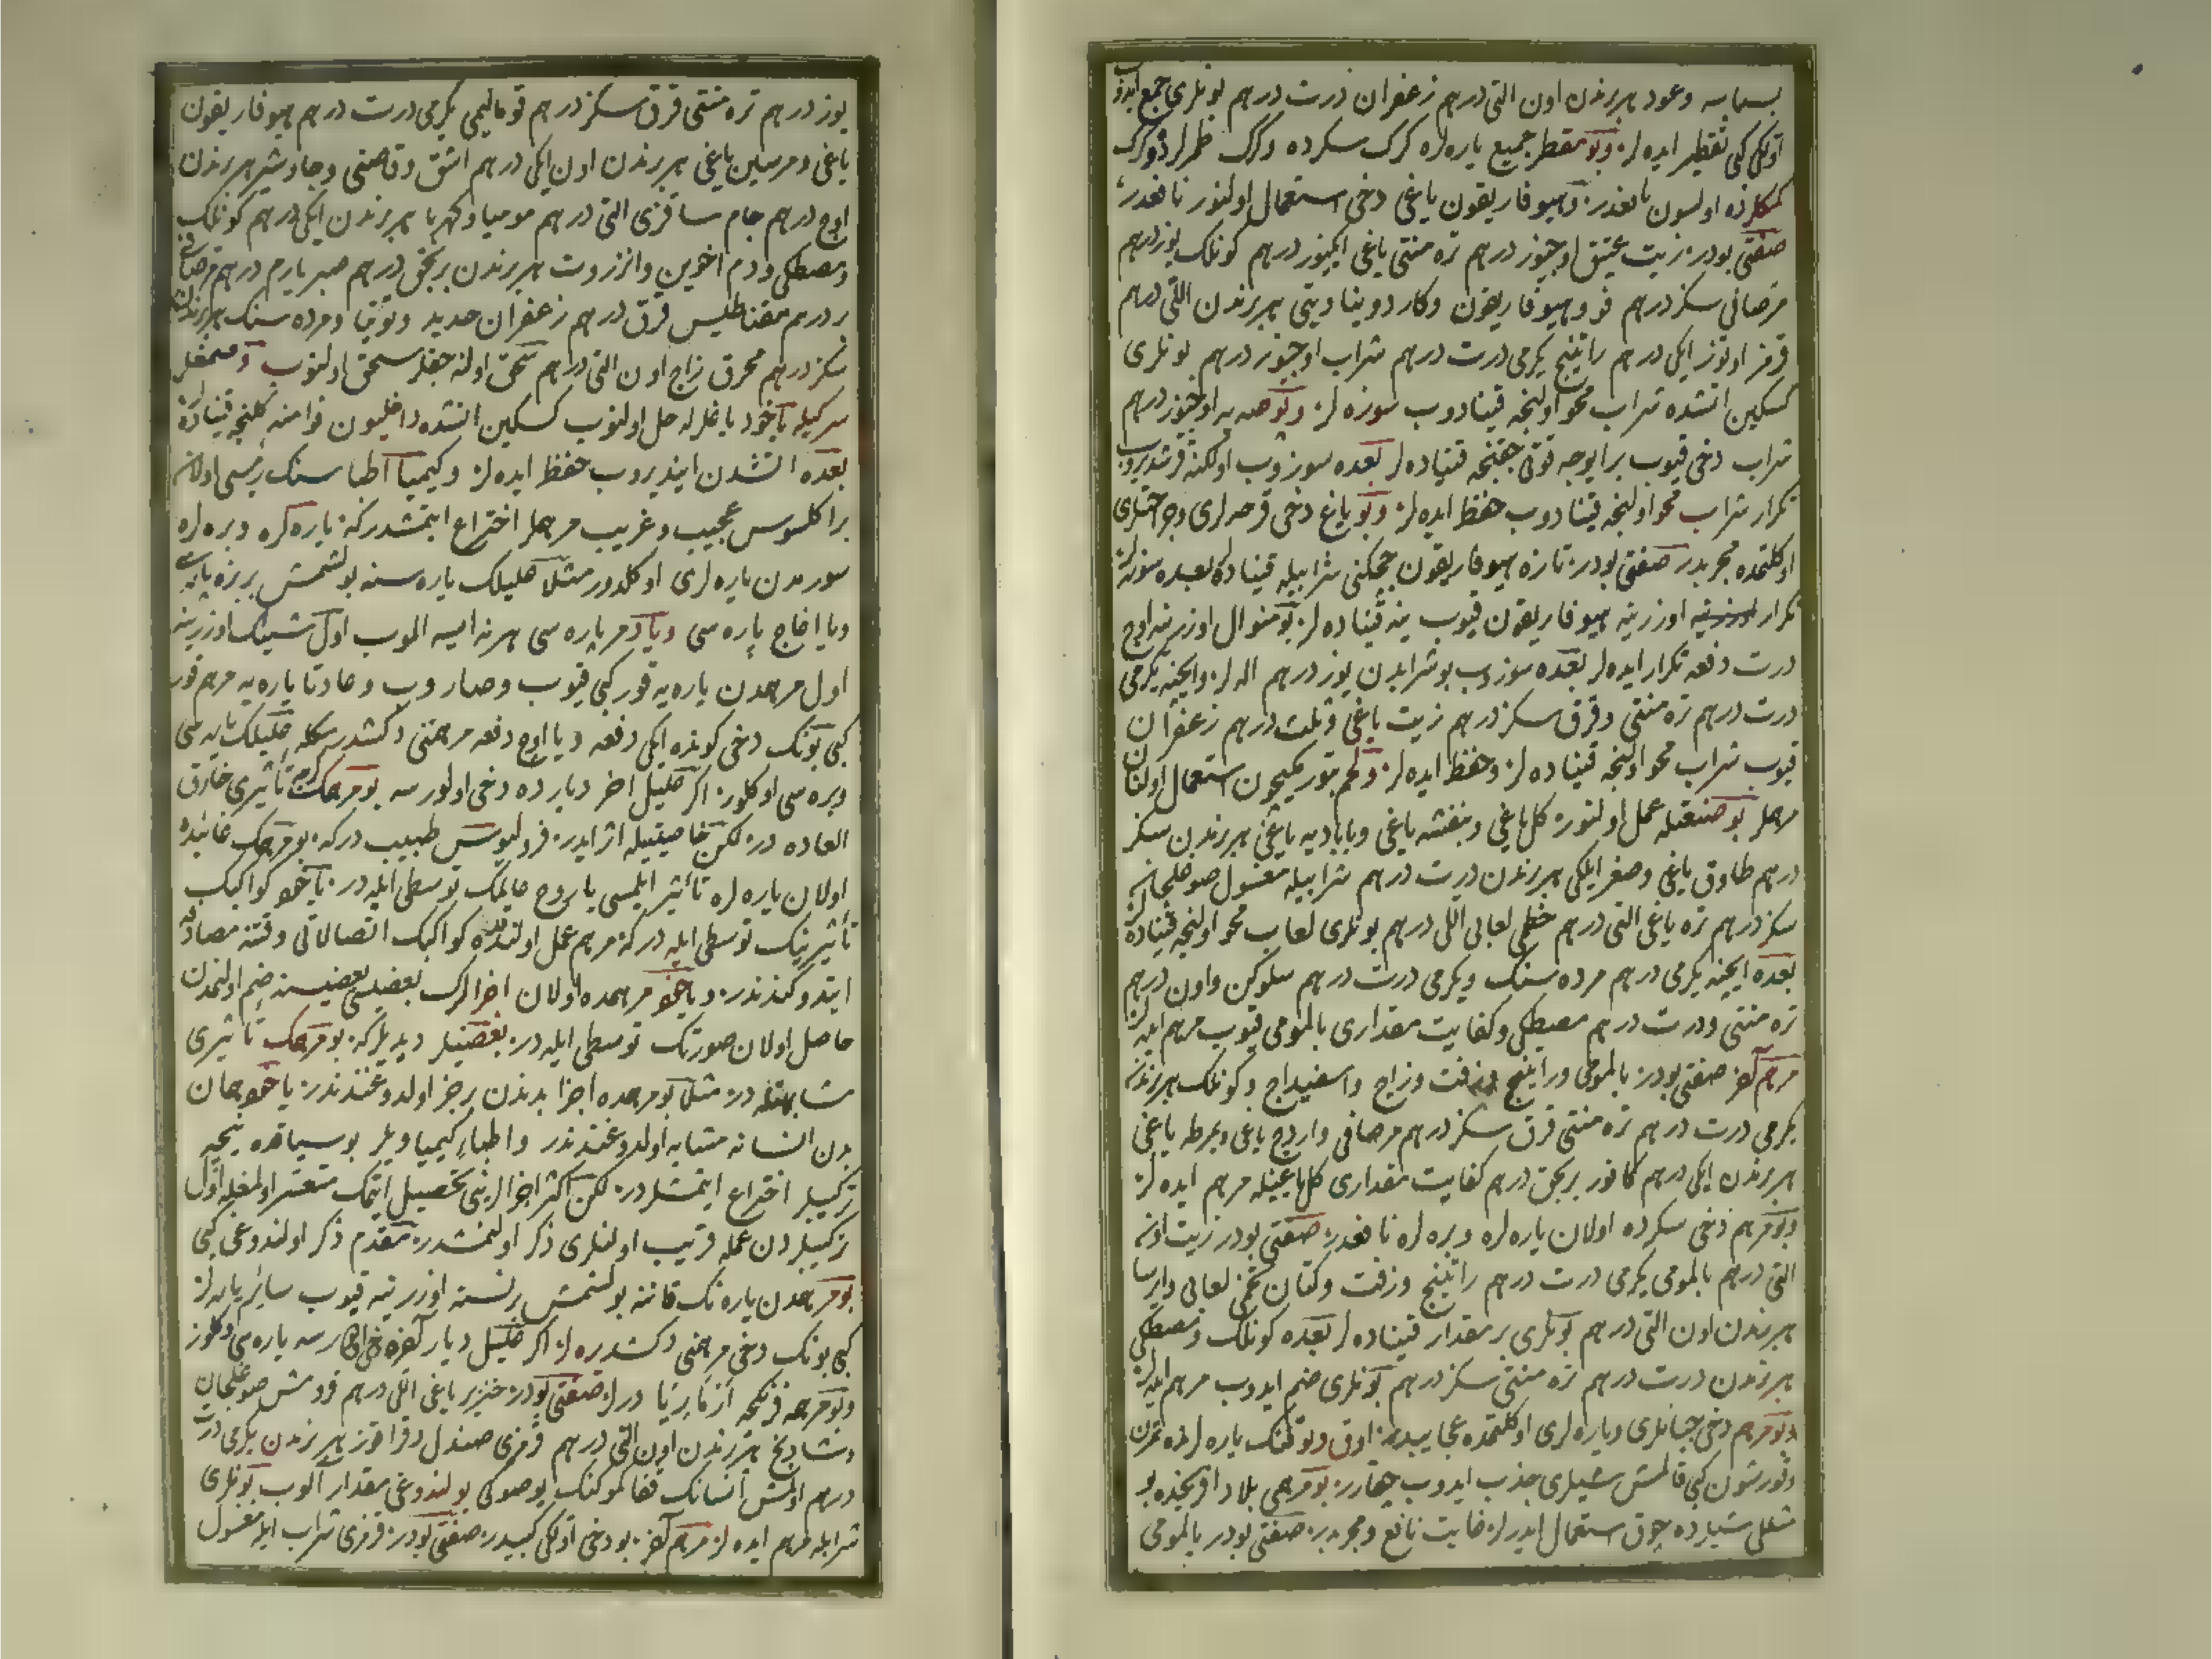 بسباسه وعود هر برندن اون التی درهم زعفران درت درهم بونلری جمع ایدوب
اولکی کبی تقطیر ایده لر وبو مقطر جمیع یاره لره کرک سکرده وکرک طمرلرده وکرک
کمکلرده اولسون نافعدر وهیوفاریقون یاغی دخی استعمال اولنور نافعدر
صنعتی بودر زیت عتیق اوچیوز درهم تره منتی یاغی ایکیوز درهم کونلک یوز درهم
مرصافی سکز درهم فوو هیوفاریقون وکاردو بنادیتی هر برندن اللی درهم
قرمز اوتوز ایکی درهم راتینج یکرمی درت درهم شراب اوچیوز درهم بونلری
سکین اتشده شراب محو اولنجه قینادوب سوزه لر وبو صویه اوچیوز درهم
شراب دخی قیوب برایوجه قوتی چقنجه قیناده لر بعده سوزوب اولکنه قرشدیروب
تکرار شراب محو اولنجه قینادوب حفظ ایده لر وبو یاغ دخی قرحه لری وجراحتلری
اوکلتمده مجربدر صنعتی بودر تازه هیوفاریقون چچکنی شرابیله قیناده لر بعده سوزه لر
تکرار اوزرینه هیوفاریقون قیوب ینه قیناده لر بو منوال اوزرینه اوج
درت دفعه تکرار ایده لر بعده سوزوب بو شرابدن یوز درهم اله لر وایچنه یکرمی
درت درهم تره منتی وقرق سکز درهم زیت یاغی وثلث درهم زعفران
قیوب شراب محو اولنجه قیناده لر وحفظ ایده لر ولحم بتورمکیچون استعمال اولنان
مرهملر بو صنعتله عمل اولنور کل یاغی وبنفشه یاغی وبابادیه یاغی هر برندن سکز
درهم طاوق یاغی وصغر ایلکی هر برندن درت درهم شرابیله مغسول صوغلجان
سکز درهم تره یاغی التی درهم خطمی لعابی اللی درهم بونلری لعاب محو اولنجه قیناده لر
بعده ایچنه یکرمی درهم مرده سنک ویکرمی درت درهم سلوکن واون درهم
تره منتی ودرت درهم مصطکی وکفایت مقداری بالمومی قیوب مرهم ایده لر
مرهم آخر صنعتی بودر بالمومی وراتینج وزفت وزاج واسفیداج وکونلک هر برندن
یکرمی درت درهم تره منتی قرق سکز درهم مرصافی واردج یاغی ویمرطه یاغی
هر برندن ایکی درهم کافور بربچق درهم کفایت مقداری کل یاغیله مرهم ایده لر
وبو مرهم دخی سکرده اولان یاره لره وبره لره نافعدر صنعتی بودر زیت اون
التی درهم بالمومی یکرمی درت درهم راتینج وزفت وکتان تخمی لعابی وایرسا
هر برندن اون التی درهم بونلری بر مقدار قیناده لر بعده کونلک ومصطکی
هر برندن درت درهم تره منتی سکز درهم بونلری ضم ایدوب مرهم ایده لر
وبو مرهم دخی چبانلری ویاره لری اوکلتمده عجایبدر اوق وتوفنک یاره لرنده تمرن
وقورشون کبی قالمش شیلری جذب ایدوب چقارر بو مرهمی بلاد افرنجده بو
شغلی شیلرده چوق استعمال ایدرلر غایت نافع ومجربدر صنعتی بودر بالمومی
یوز درهم تره منتی قرق سکز درهم قومالیمی یکرمی درت درهم هیوفاریقون
یاغی ومرسین یاغی هر برندن اون ایکی درهم اشق وقاصنی وجاوشیر هر برندن
اوج درهم جام ساقزی التی درهم مومیا وکهربا هر برندن ایکی درهم کونلک
ومصطکی ودم اخوین وانزروت هر برندن بربچق درهم صبر یارم درهم مرصافی
بر درهم مقناطیس قرق درهم زعفران حدید وتوتیا ومرده سنک هر برندن
سکز درهم محرق زاج اون التی درهم سحق اولنه جقلر سحق اولنوب وصمغلر
سرکیله یاخود یاغلرله حل اولنوب سکین اتشده داخلیون قوامنه کلنجه قیناده لر
بعده اتشدن ایندیروب حفظ ایده لر وکیمیا اطباسنک رئیسی اولان
براکلسوس عجیب وغریب مرهملر اختراع ایتمشدرکه یاره لره وبره لره
سورمدن یاره لری اوکلدور مثلا علیلک یاره سنه بولشمش بر بزه پاره سی
ویا اغاج پاره سی ویا دمر پاره سی هر نه ایسه الوب اول شینک اوزرینه
اول مرهمدن یاره یه قور کبی قیوب وصاروب وعادتا یاره یه مرهم قور
کبی بونک دخی کونده ایکی دفعه ویا اوج دفعه مرهمنی دکشدرمکله علیلک یاره سی
وبره سی اوکلور اکر علیل اخر دیارده دخی اولورسه بو مرهمک کرچه تأثیری خارق
العاده در لکن خاصیتیله اثر ایدر قرولیوس طبیب درکه بو مرهمک غائبده
اولان یاره لره تأثیر ایلمسی یا روح عالمک توسطی ایله در یاخود کواکبک
تأثیرینک توسطی ایله درکه مرهم عمل اولندقده کواکبک اتصالاتی وقتنه مصادف
ایتدوکندندر ویاخود مرهمده اولان اجزالرک بعضیسی بعضیسنه ضم اولنمدن
حاصل اولان صورتک توسطی ایله در بعضیلر دیدیلرکه بو مرهمک تأثیری
مشابهتله در مثلا بو مرهمده اجزا بدندن بر جزء اولدوغندندر یاخود همان
بدن انسانه متشابه اولدوغندندر واطباء کیمیاویلر بو سیاقده نیجه
ترکیبلر اختراع ایتمشلردر لکن اکثر اجزالرینی تحصیل ایتمک متعسر اولمغله اول
ترکیبلردن عمله قریب اولنلری ذکر اولنمشدر مقدم ذکر اولندوغی کبی
بو مرهمدن یاره نک قاننه بولشمش بر نسنه اوزرینه قیوب سائر یاره لر
کبی بونک دخی مرهمنی دکشدیره لر اکر علیل دیار آخرده دخی اولورسه یاره سی اوکلور
وبو مرهمه فرنکجه ارماریا درلر صنعتی بودر خنزیر یاغی اللی درهم قورومش صوغلجان
وشادنج هر برندن اون التی درهم قرمزی صندل وقراقوز هر برندن یکرمی درت
درهم اولمش انسانک قفا کموکنک یوصونی بولندوغی مقدار آلوب بونلری
شرابله مرهم ایده لر مرهم آخر بو دخی اولکی کبیدر صنعتی بودر قرمزی شراب ایله مغسول